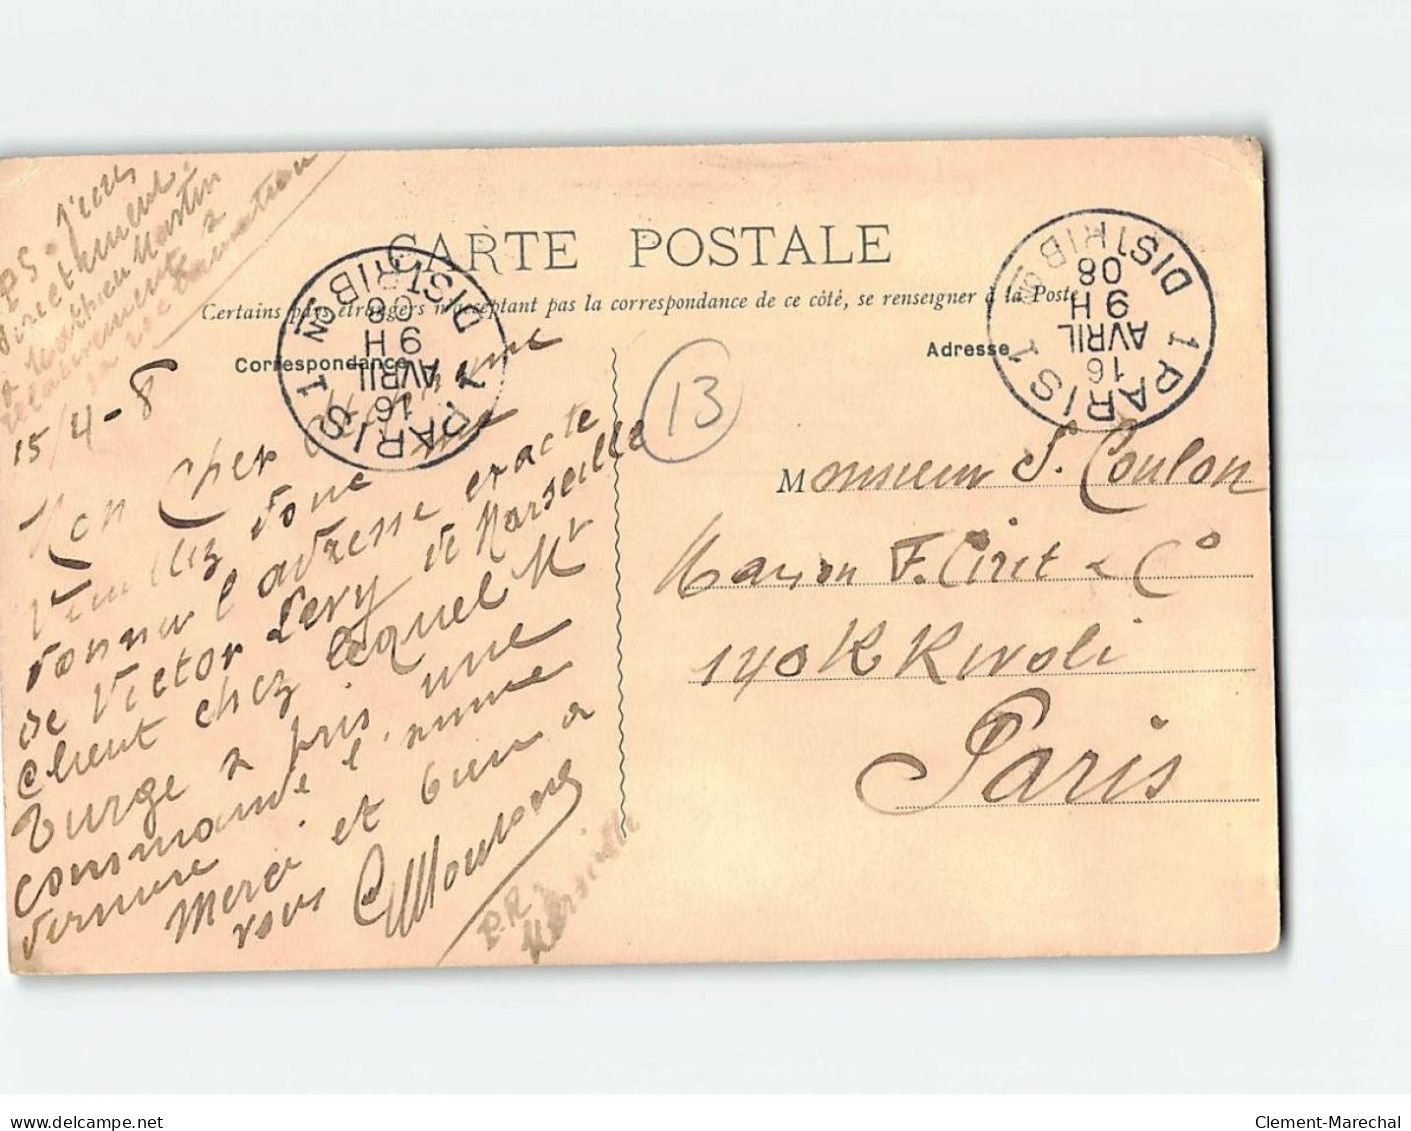 PS. J'écris
directement
a Mathieu Martin
relativement a
sa réclamation
CARTE POSTALE
Certains pays étrangers n'acceptant pas la correspondance de ce côté, se renseigner à la Poste
Correspondance
Adresse
PARIS 1
DISTRIBON
9 H
16
AVRIL
08
PARIS 1
DISTRIBON
9 H
16
AVRIL
08
13
15/4-8
Mon Cher
Veuillez donc me
donner l'adresse exacte
de Victor Levy de Marseille
client chez lequel Mr
Turge a pris une
commande l'année
dernière.
Merci et bien a
vous
P.R.
Marseille
Monsieur S. Coulon
Maison F. Ciret & Co
140 R Rivoli
Paris
delcampe.net
Clement-Marechal